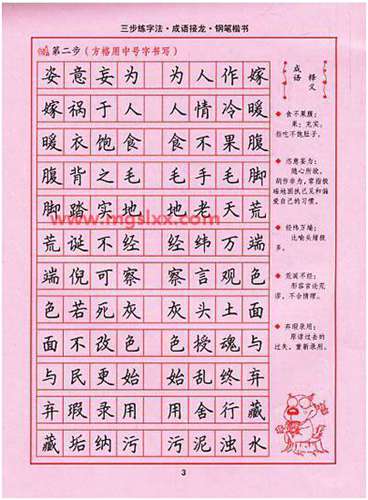 三步练字法·成语接龙·钢笔楷书
第二步（方格用中号字书写）
姿意妄为 为人作嫁
嫁祸于人 人情冷暖
暖衣饱食 食不果腹
腹背之毛 毛手毛脚
脚踏实地 地老天荒
荒诞不经 经纬万端
端倪可察 察言观色
色若死灰 灰头土面
面不改色 色授魂与
与民更始 始乱终弃
弃瑕录用 用舍行藏
藏垢纳污 污泥浊水
成语释义
食不果腹：
果：充实。
指吃不饱肚子。
恣意妄为：
随心所欲，
胡作非为，常指牧
经纬万端：
比喻头绪很
多。
荒诞不经：
形容言论荒
谬，不合情理。
弃瑕录用：
原谅过去的
过失，重新录用。
www.mgslxx.com
3